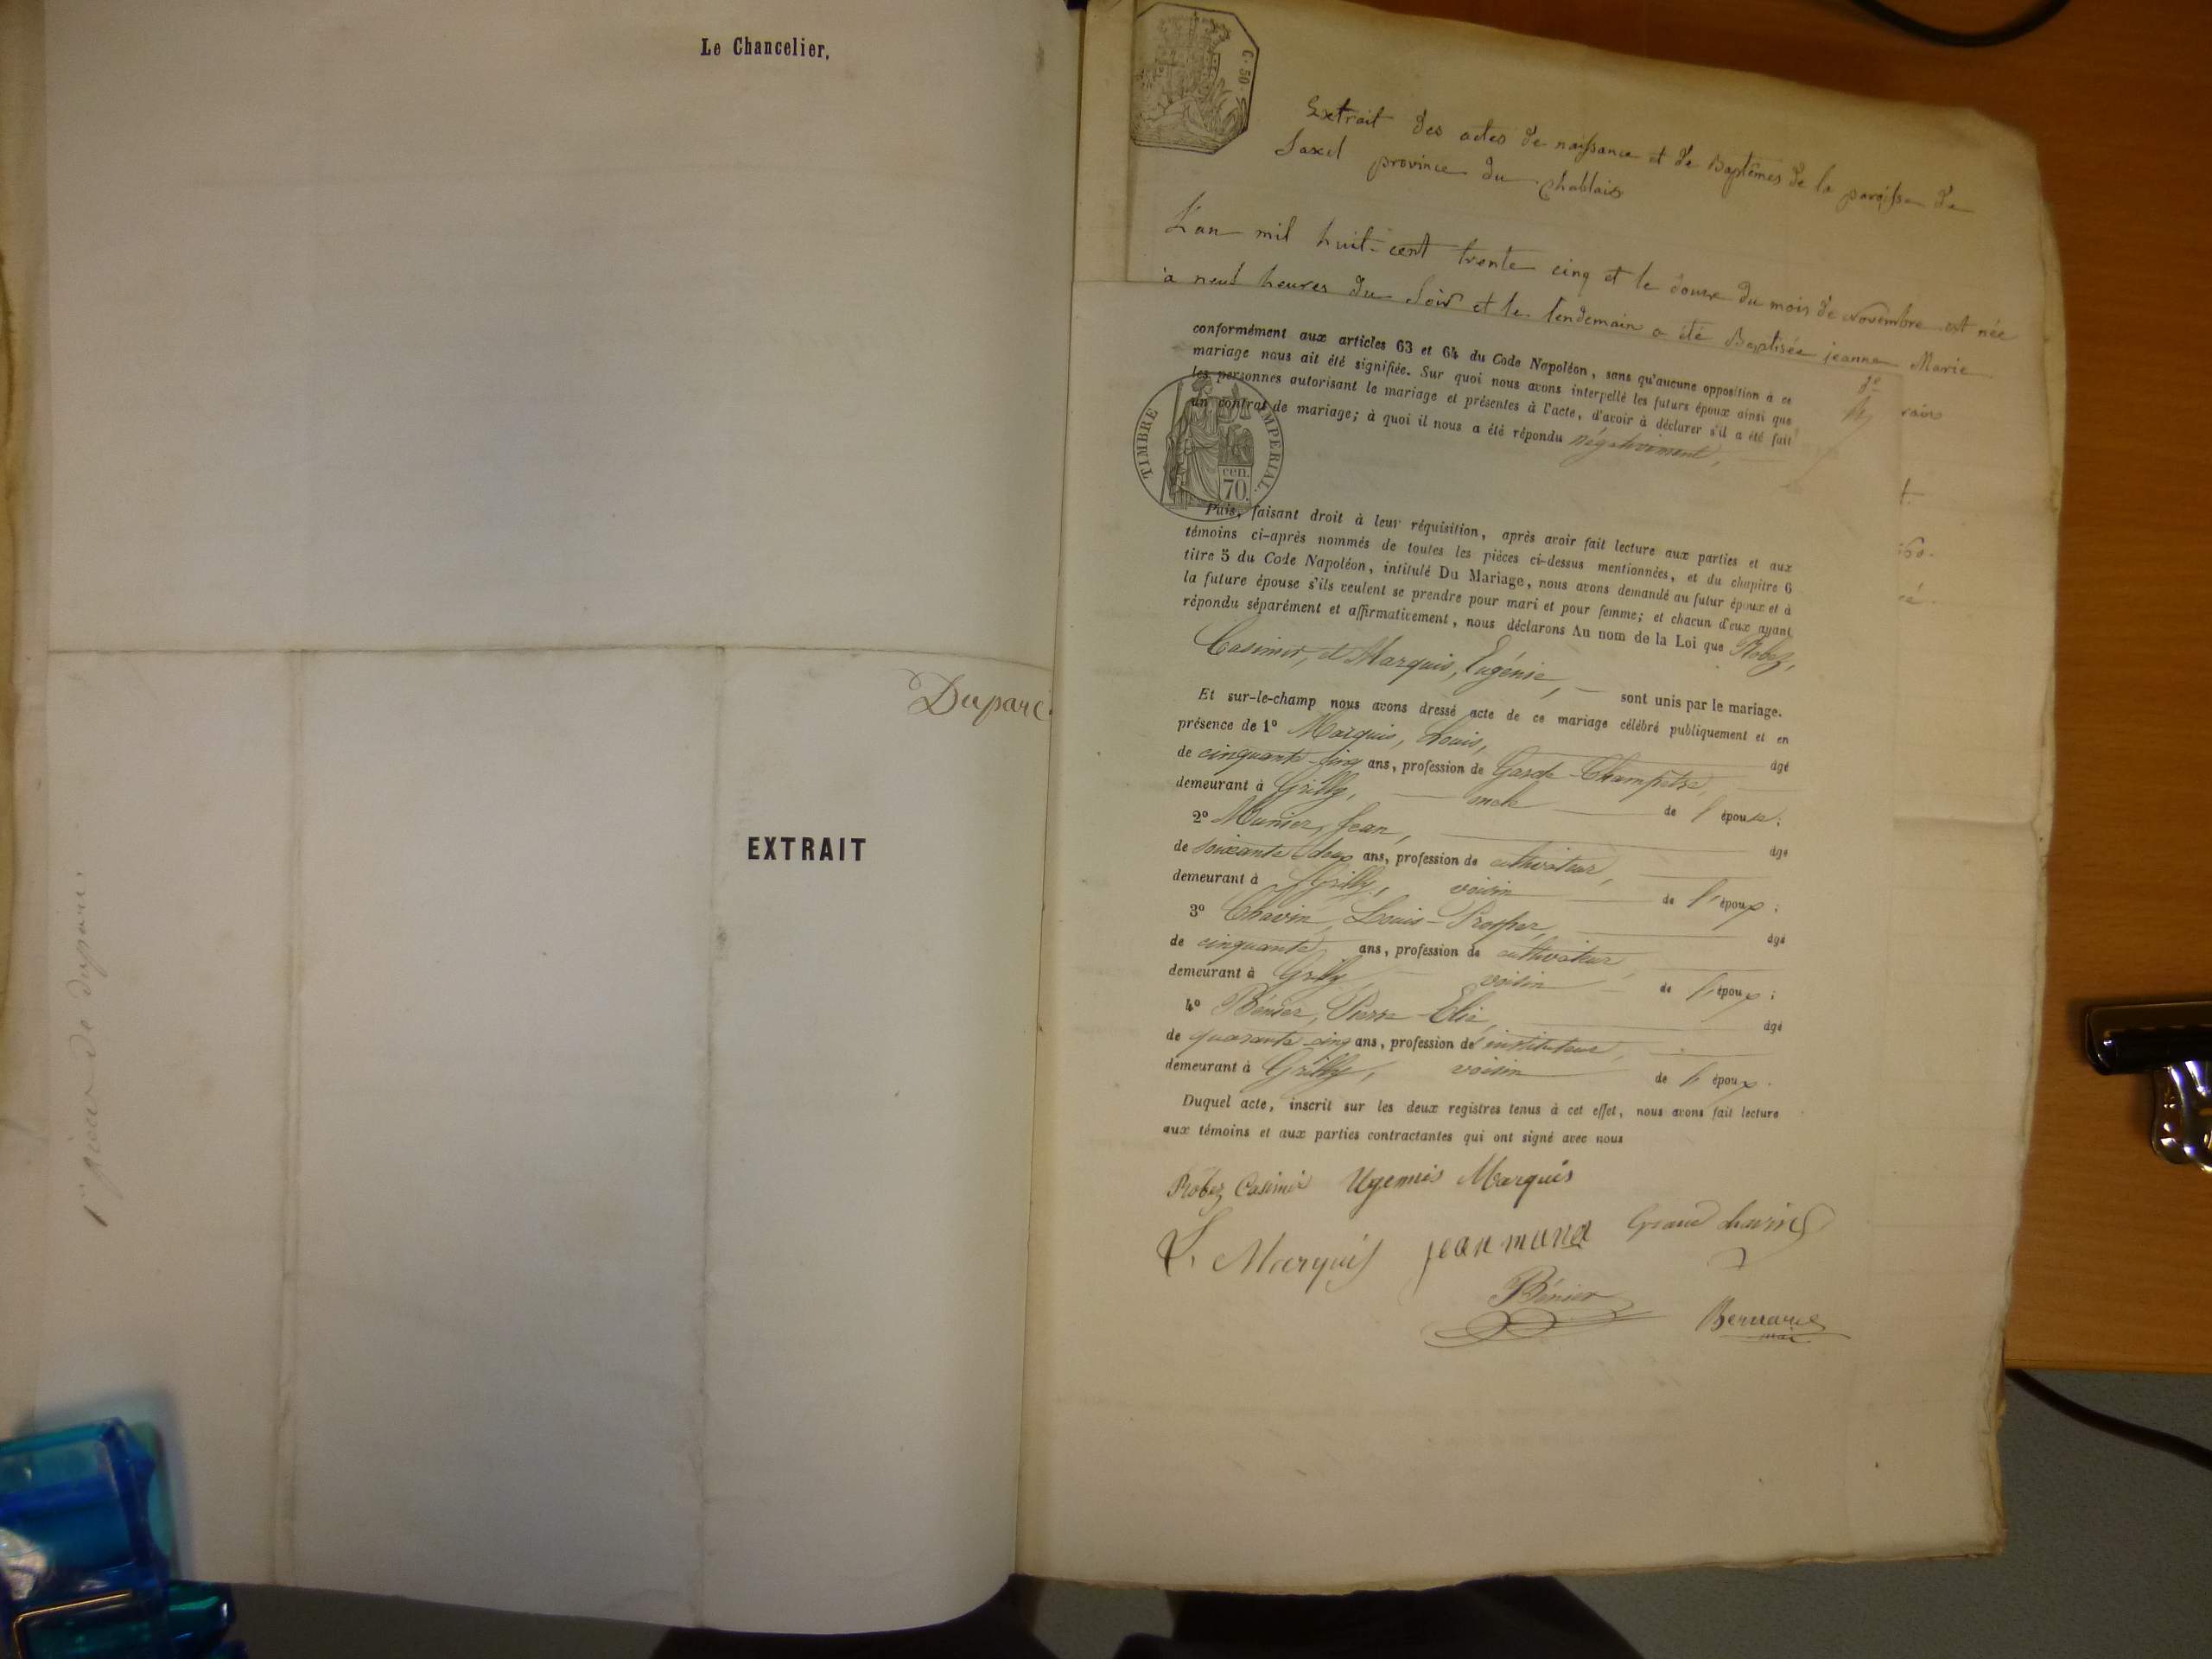 Le Chancelier,
Duparc
EXTRAIT
1re pièce de Duparc.
C. 50
Extrait des actes de naissance et de Baptêmes de la paroisse de
Saxel province du Chablais
L'an mil huit-cent trente cinq et le douze du mois de Novembre est née
à neuf heures du soir et le lendemain a été Baptisée jeanne Marie
conformément aux articles 63 et 64 du Code Napoléon, sans qu'aucune opposition à ce
mariage nous ait été signifiée. Sur quoi nous avons interpellé les futurs époux ainsi que
les personnes autorisant le mariage et présentes à l'acte, d'avoir à déclarer s'il a été fait
un contrat de mariage; à quoi il nous a été répondu négativement,
TIMBRE IMPERIAL.
cen.
70.
Puis, faisant droit à leur réquisition, après avoir fait lecture aux parties et aux
témoins ci-après nommés de toutes les pièces ci-dessus mentionnées, et du chapitre 6
titre 5 du Code Napoléon, intitulé Du Mariage, nous avons demandé au futur époux et à
la future épouse s'ils veulent se prendre pour mari et pour femme; et chacun d'eux ayant
répondu séparément et affirmativement, nous déclarons Au nom de la Loi que Robez,
Casimir, et Marquis, Eugénie, — sont unis par le mariage.
Et sur-le-champ nous avons dressé acte de ce mariage célébré publiquement et en
présence de 1º Marquis, Louis, âgé
de cinquante-cinq ans, profession de Garde-Champêtre,
demeurant à Grilly, — oncle — de l'épouse;
2º Munier, Jean, âgé
de soixante-deux ans, profession de cultivateur,
demeurant à Grilly, voisin — de l'époux;
3º Chavin, Louis-Prosper, âgé
de cinquante ans, profession de cultivateur,
demeurant à Grilly voisin — de l'époux;
4º Bénier, Pierre-Elie, âgé
de quarante-cinq ans, profession de instituteur,
demeurant à Grilly, voisin — de l'époux.
Duquel acte, inscrit sur les deux registres tenus à cet effet, nous avons fait lecture
aux témoins et aux parties contractantes qui ont signé avec nous
Robez Casimir Ugennis Marquis
L. Marquis jean
Bénier Bernard